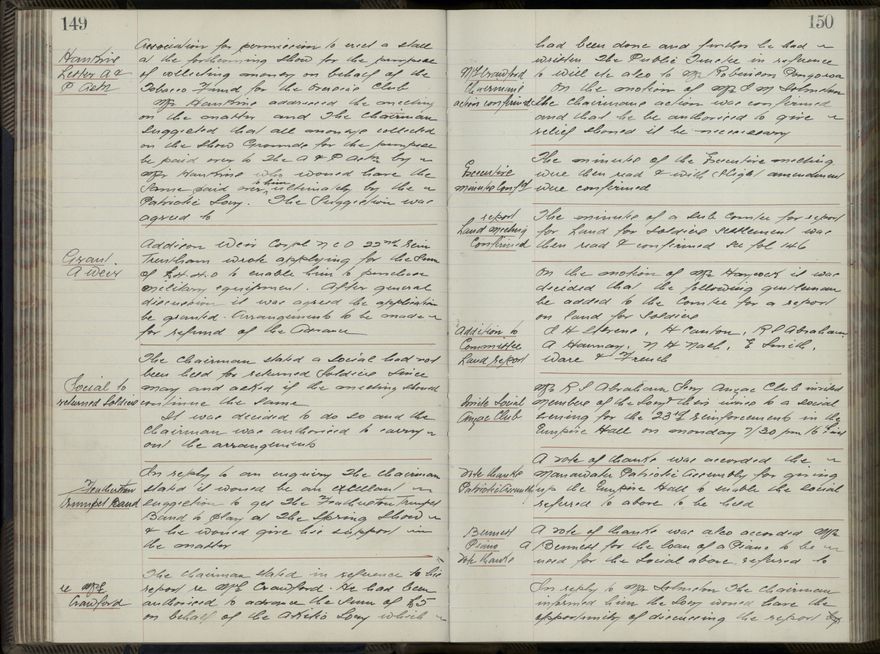 149
Hankins
Lester A &
P Assn
Association for permission to erect a stall
at the forthcoming Show for the purpose
of collecting money on behalf of the
Tobacco Fund for the Club
Mr Hankins addressed the meeting
on the matter and The Chairman
suggested that all moneys collected
on the Show Grounds for the purpose
be paid over to The A & P Assn by
Mr Hankins who would have the
same paid over to him ultimately by the
Patriotic Socy. The Suggestion was
agreed to
Grant
A Weir
Addison Weir Corpl N C O 22nd Rein
Trentham wrote applying for the Sum
of to enable him to purchase
military equipment. After general
discussion it was agreed the application
be granted. Arrangements to be made
for refund of the Advance
Social to
returned Soldiers
The Chairman stated a Social had not
been held for returned Soldiers since
may and asked if the meeting should
continue the same
It was decided to do so and the
Chairman was authorised to carry
out the arrangements
Featherston
Trumpet Band
In reply to an enquiry The Chairman
stated it would be an excellent
suggestion to get The Featherston Trumpet
Band to play at The Spring Show
& he would give his support in
the matter
re Mrs
Crawford
The Chairman stated in reference to his
report re Mrs Crawford. He had been
authorised to advance the sum of £5
on behalf of the Socy which
150
Mrs Crawford
Chairmans
action confirmed
had been done and further he had
written The Public Trustee in reference
to will & also to Mr Robinson Pongoroa
On the motion of Mr Johnston
the Chairmans action was confirmed
and that he be authorised to give
relief should it be necessary
Executive
minutes Conf
The minutes of the Executive meeting
were then read & with slight amendment
were confirmed
report
Land meeting
Confirmed
The minutes of a Sub Comtee for report
for Land for Soldiers settlement was
then read & confirmed see fol 146
On the motion of Mr Hancock it was
decided that the following gentleman
be added to the Comtee for a report
on Land for Soldiers
Addition to
Committee
Land report
H Stevens, H Canton, R S Abraham,
A Hannay, N H Nash, E Smith,
Ware & French
Invite Social
Anzac Club
Mr R S Abraham Socy Anzac Club invited
members of the Socy & their wives to a social
evening for the 23rd reinforcements in the
Empire Hall on monday 7/30 pm 16th inst
Vote thanks
Patriotic Assembly
A vote of thanks was accorded the
Manawatu Patriotic Assembly for giving
up the Empire Hall to enable the social
referred to above to be held
Bennett
Piano
Vote thanks
A vote of thanks was also accorded Mr
A Bennett for the loan of a Piano to be
used for the Social above referred to
In reply to Mr Johnston The Chairman
informed him the Socy would have the
opportunity of discussing the report